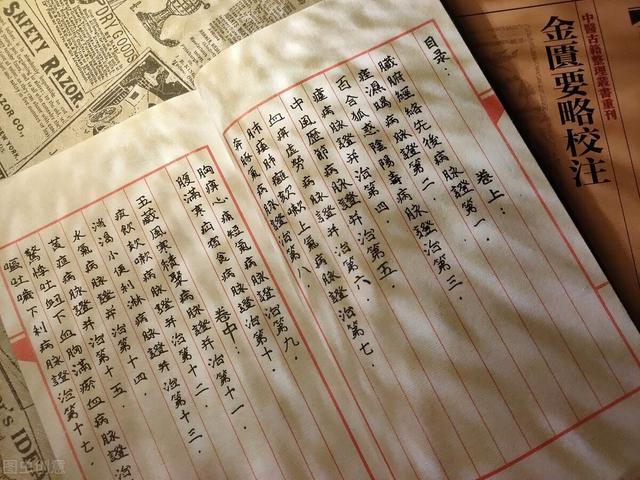 目录：
卷上：
臟腑經絡先後病脉證第一．
痙濕暍病脉證第二．
百合狐惑陰陽毒病脉證治第三．
瘧病脉證并治第四．
中風歷節病脉證并治第五．
血痹虛勞病脉證并治第六．
肺痿肺癰欬嗽上氣病脉證治第七．
奔豚氣病脉證治第八．
胸痹心痛短氣病脉證治第九．
腹滿寒疝宿食病脉證治第十．
卷中：
五臟風寒積聚病脉證并治第十一．
痰飲欬嗽病脉證并治第十二．
消渴小便利淋病脉證并治第十三．
水氣病脉證并治第十四．
黃疸病脉證并治第十五．
驚悸吐衄下血胸滿瘀血病脉證治
嘔吐噦下利病脉證治第十七．
中醫古籍整理叢書重刊
金匱要略校注
SAFETY RAZOR
DRY GOODS
RAZOR CO.
NEW YORK.
图虫创意